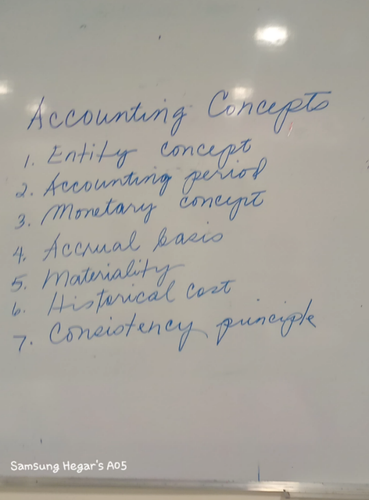 Accounting Concepts
1. Entity concept
2. Accounting period
3. Monetary concept
4. Accrual basis
5. Materiality
6. Historical cost
7. Consistency principle
Samsung Hegar's A05